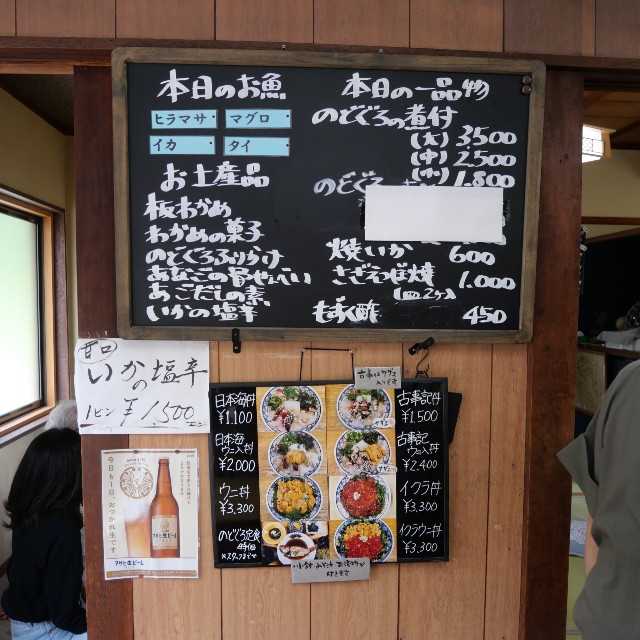 本日のお魚
ヒラマサ
マグロ
イカ
タイ
お土産品
板わかめ
わかめの菓子
のどぐろふりかけ
あなごの骨せんべい
あごだしの素
いかの塩辛
本日の一品物
のどぐろの煮付
(大) 3,500
(中) 2,500
(小) 1,800
のどぐろ
焼いか 600
さざえつぼ焼 1,000
(1皿2ケ)
もずく酢 450
甘口
いかの塩辛
1ビン ¥1,500
日本海丼
¥1,100
日本海ウニ入丼
¥2,000
ウニ丼
¥3,300
のどぐろ定食
古事記丼
¥1,500
古事記ウニ入丼
¥2,400
イクラ丼
¥3,300
イクラウニ丼
¥3,300
今日も1日、おつかれ生です。
アサヒ生ビール